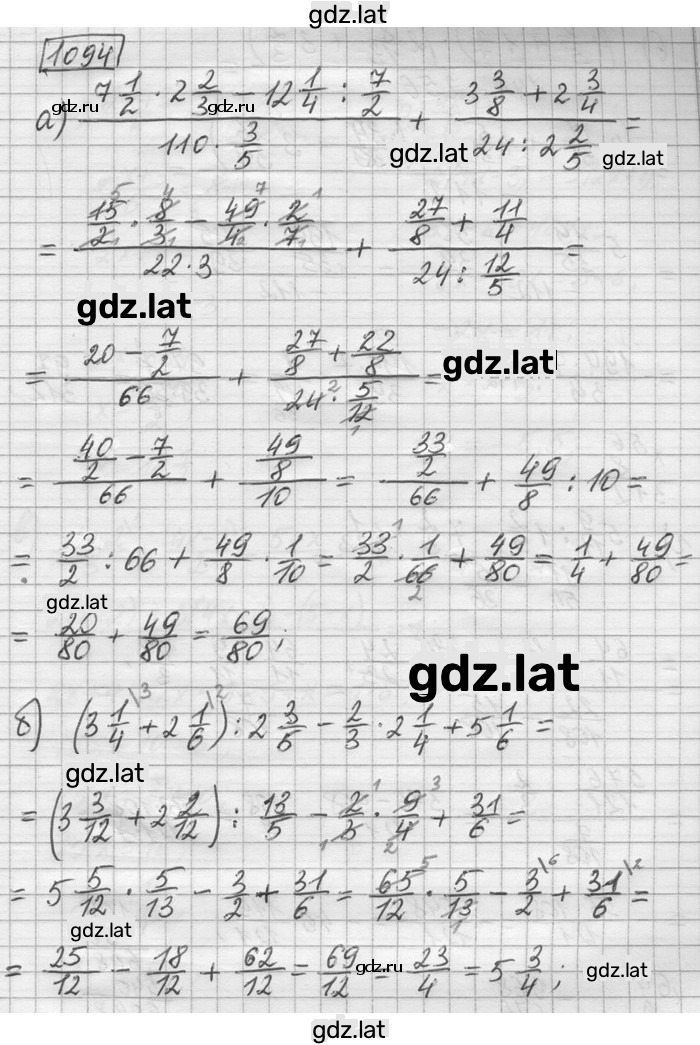 gdz.lat
1094
а) (7 1/2 · 2 2/3 − 12 1/4 : 7/2)/(110 · 3/5) + (3 3/8 + 2 3/4)/(24 : 2 2/5) =
gdz.lat
gdz.lat
gdz.lat
= (15/2 · 8/3 − 49/4 · 2/7)/(22·3) + (27/8 + 11/4)/(24 : 12/5) =
gdz.lat
= (20 − 7/2)/66 + (27/8 + 22/8)/(24 · 5/12) =
gdz.lat
= (40/2 − 7/2)/66 + (49/8)/10 = (33/2)/66 + 49/8 : 10 =
= 33/2 : 66 + 49/8 · 1/10 = 33/2 · 1/66 + 49/80 = 1/4 + 49/80 =
gdz.lat
= 20/80 + 49/80 = 69/80;
gdz.lat
б) (3 1/4 \3 + 2 1/6 \2) : 2 3/5 − 2/3 · 2 1/4 + 5 1/6 =
gdz.lat
= (3 3/12 + 2 2/12) : 13/5 − 2/3 · 9/4 + 31/6 =
= 5 5/12 · 5/13 − 3/2 + 31/6 = 65/12 · 5/13 − 3/2 \6 + 31/6 \2 =
gdz.lat
= 25/12 − 18/12 + 62/12 = 69/12 = 23/4 = 5 3/4;
gdz.lat
gdz.lat
gdz.lat